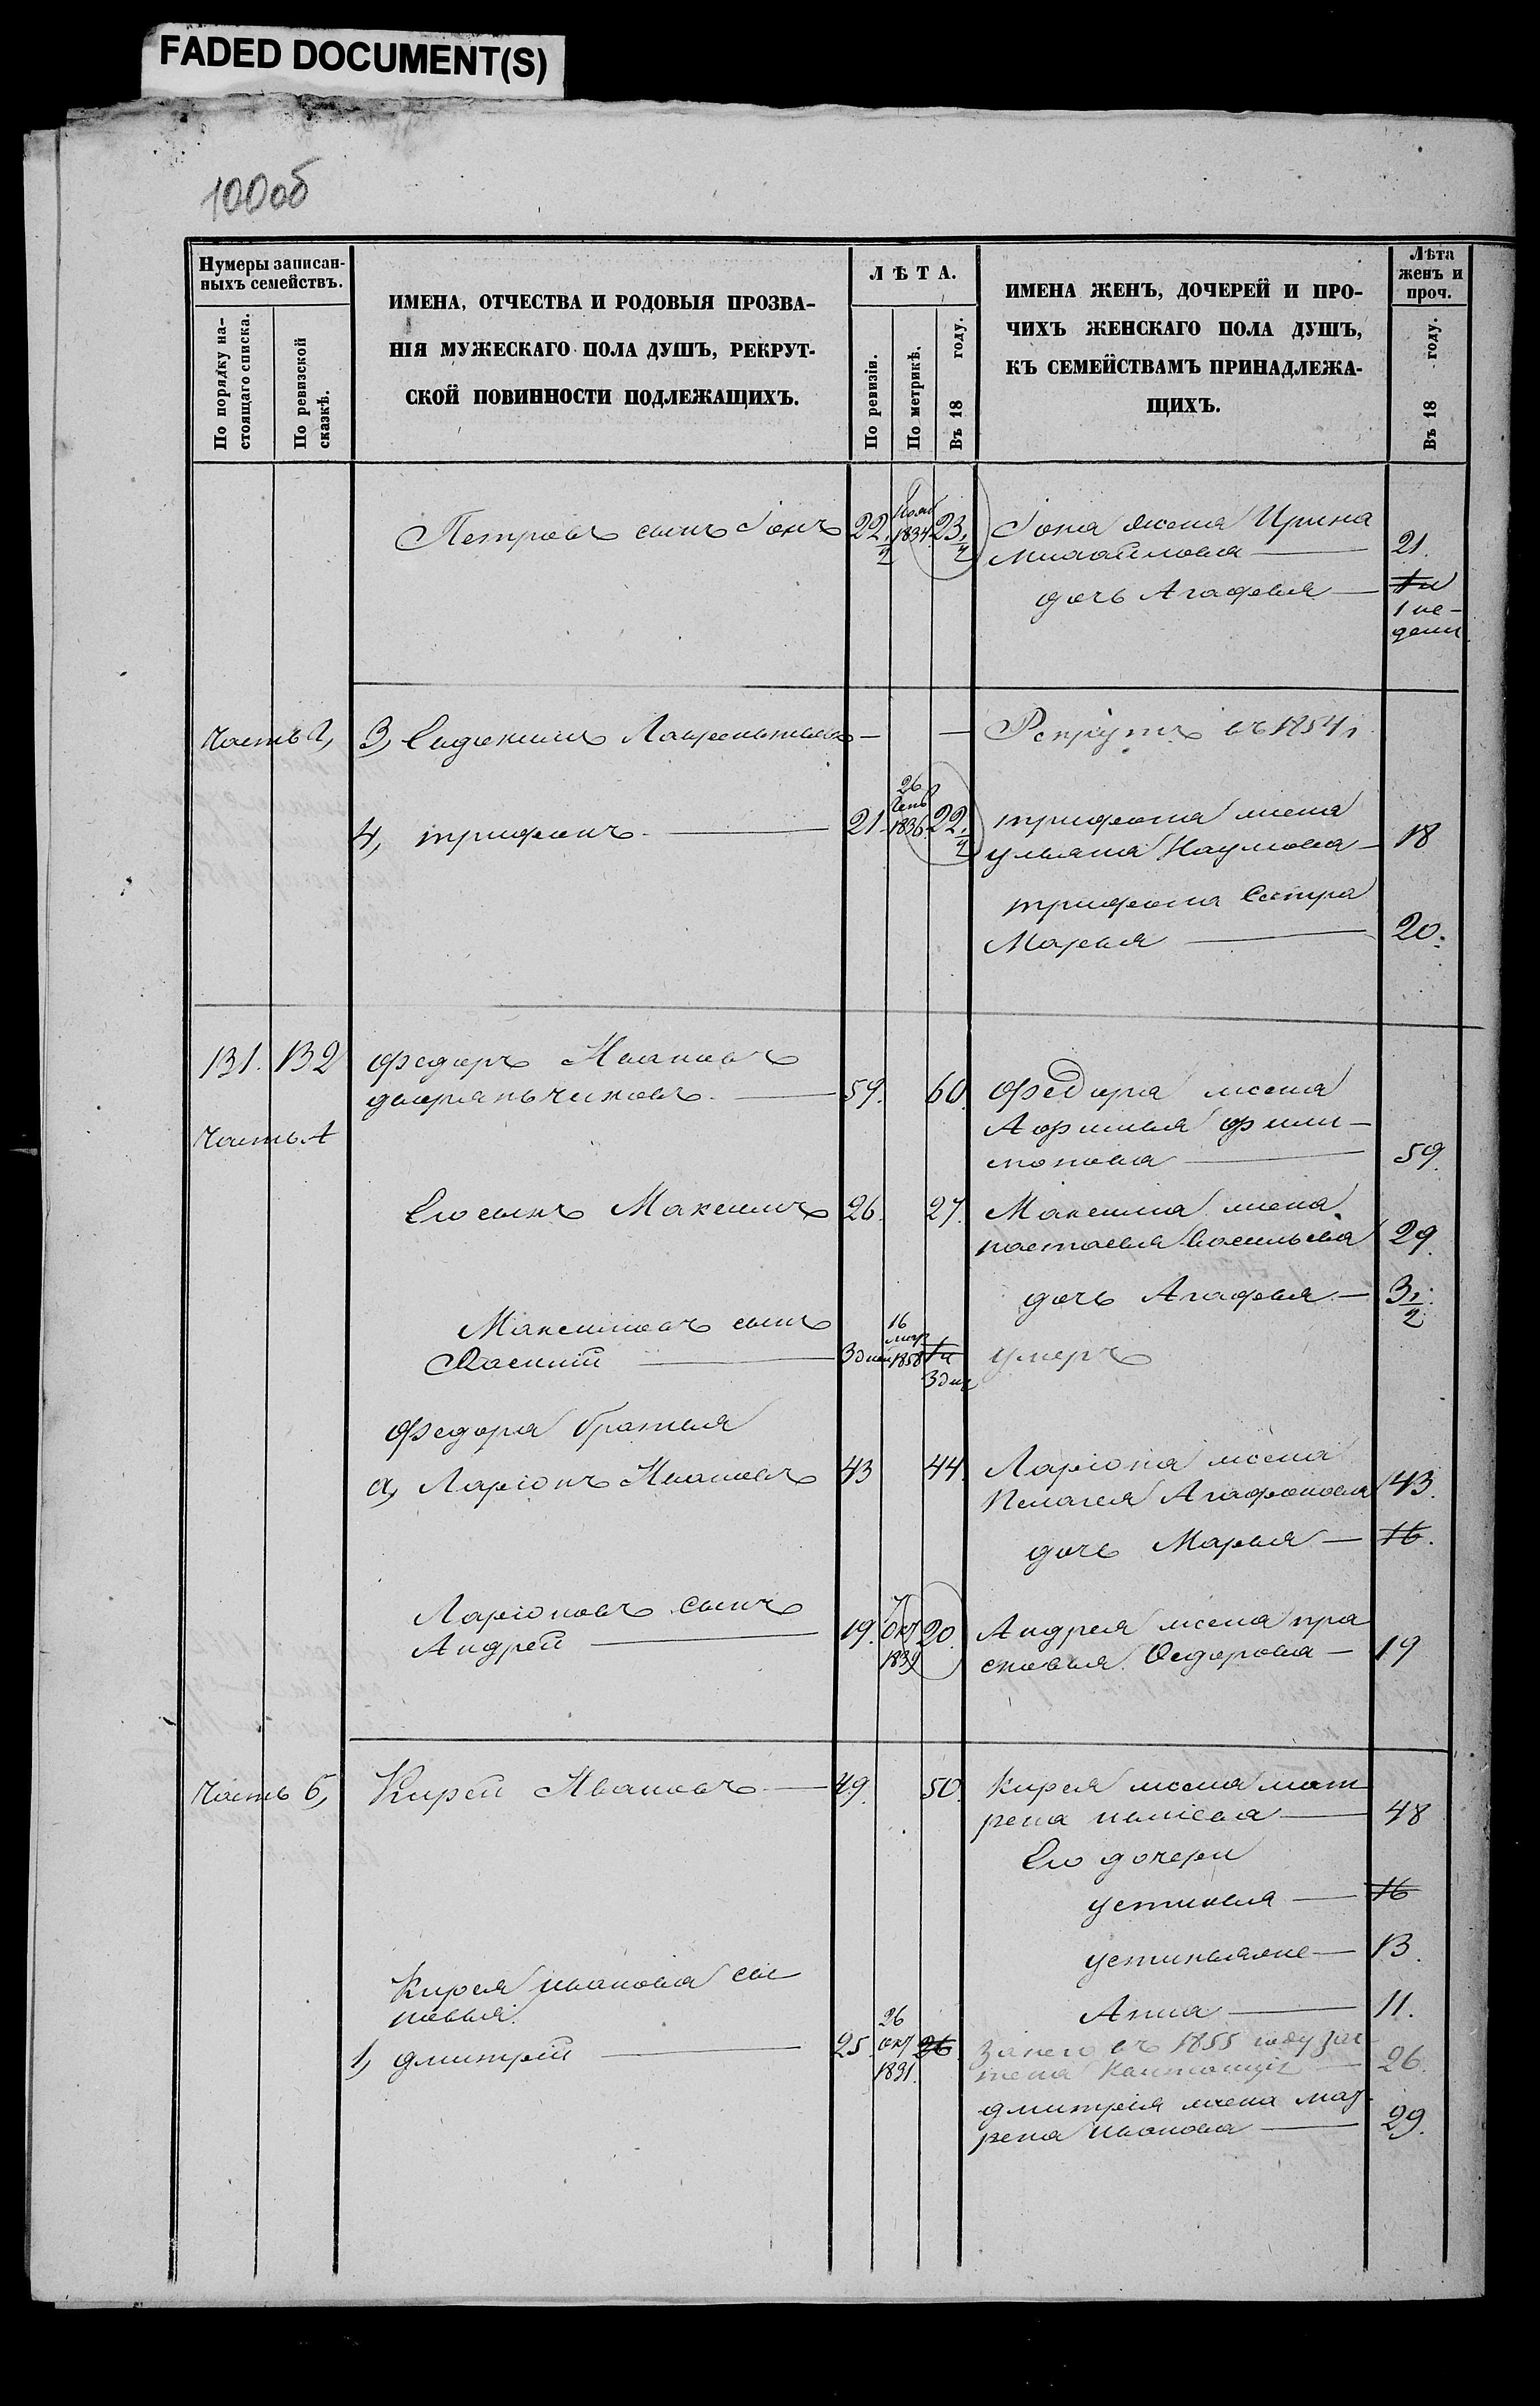 FADED DOCUMENT(S)
100об
Нумеры записан-
ныхъ семействъ.
По порядку на-
стоящаго списка.
По ревизской
сказкѣ.
ИМЕНА, ОТЧЕСТВА И РОДОВЫЯ ПРОЗВА-
НІЯ МУЖЕСКАГО ПОЛА ДУШЪ, РЕКРУТ-
СКОЙ ПОВИННОСТИ ПОДЛЕЖАЩИХЪ.
ЛѢТА.
По ревизіи.
По метрикѣ.
Въ 18 году.
ИМЕНА ЖЕНЪ, ДОЧЕРЕЙ И ПРО-
ЧИХЪ ЖЕНСКАГО ПОЛА ДУШЪ,
КЪ СЕМЕЙСТВАМЪ ПРИНАДЛЕЖА-
ЩИХЪ.
Лѣта
женъ и
проч.
Въ 18 году.
Петровъ сынъ Іонъ 22 1/2 1834 23 1/2 Іона жена Ирина
Михайлова 21.
дочь Агафья
1 не-
дели
Часть 2, 3, Евдокимъ Лаврентьевъ — — Рекрутъ въ 1854 г
4, трифонъ 21 26 Генв 1836 22 1/2 трифона жена
ульяна Наумова 18
трифона Сестра
Марья 20.
131. 132 Федоръ Ивановъ
дворянчиковъ 59. 60. Федора жена
Часть А Афимья фили-
монова 59.
Его сынъ Максимъ 26. 27. Максима жена
настасья Васильева 29.
дочь Агафья 3 1/2
Максимовъ сынъ
Василий 3 дней 16 мар 1858 3 дня умеръ
Федора братья
а, Ларіонъ Ивановъ 43 44. Ларіона жена
Пелагея Агафонова 43.
дочь Марья 16.
Ларіоновъ сынъ
Андрей 19. 7 Окт 1839 20. Андрея жена пра
сковья Федорова 19
Часть б, Кирей Ивановъ 49. 50. Кирея жена мат
рена 48
Его дочери
устинья 16
13.
Кирея иванова сы
новья: Анна 11.
1, дмитрей 25. 26 окт 1831. 26. За него въ 1855 году
26.
дмитрия жена мат
рена иванова 29.